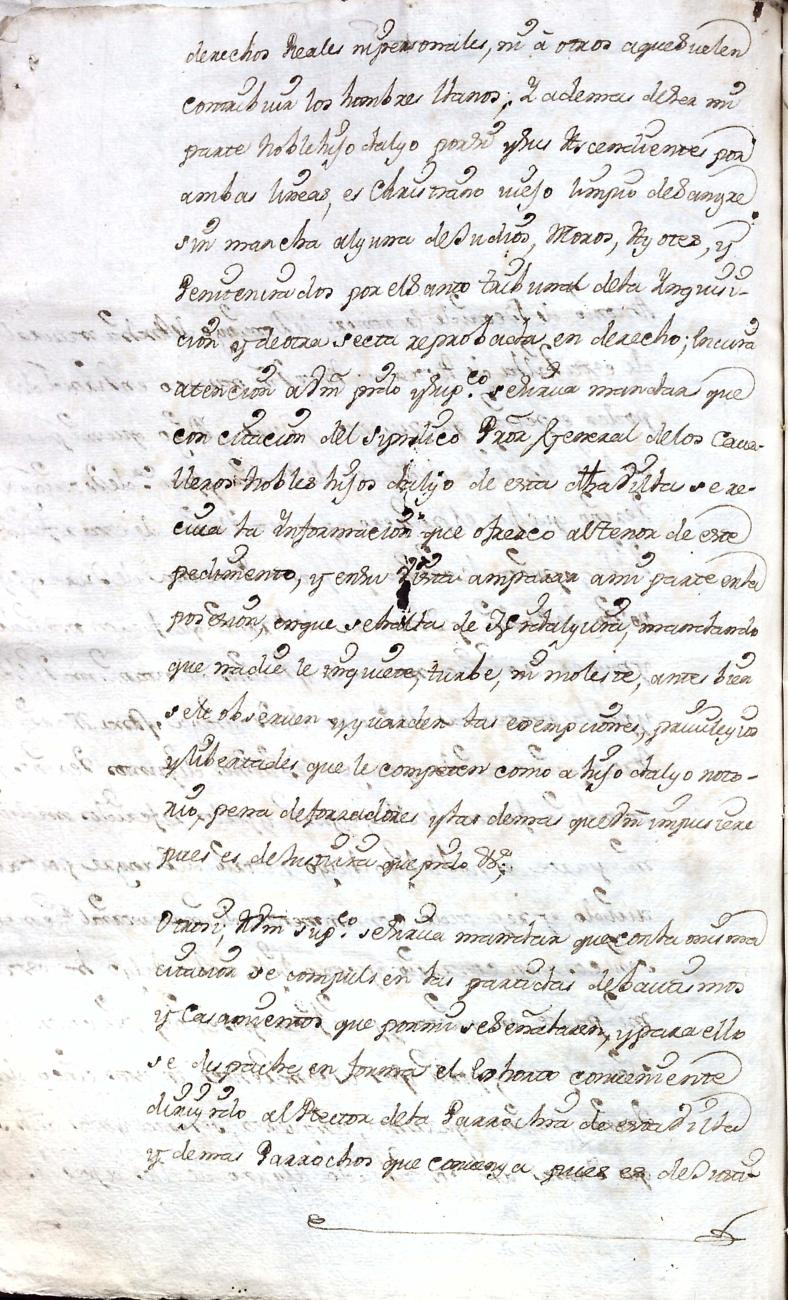 derechos Reales nipersonales, ni à otros aquesuelen
contribuir los hombres llanos; Y ademas deser mi
parte Noble hijo dalgo porsi ysus Ascendientes por
ambas lineas, es Christiano viejo limpio desangre
sin mancha alguna deJudios, Moros, Agotes, y
Penitenciados por elSanto tribunal dela Ynquisi-
cion y deotra secta reprobada en derecho; Encuia
atencion aVm pido ysupco. sesirva mandar que
con citacion del sindico Pror General delos Cava-
lleros Nobles hijos dalgo de esta dha Villa se re-
civa la Ynformacion que ofrezco altenor de este
pedimento, y ensu Vista amparar ami parte enla
posesion, enque sehalla de Hidalguia, mandando
que nadie le inquiete, turbe, ni moleste, antes bien
sele observen yguarden las exempciones, privilegios
ylibertades que le competen como a hijo dalgo noto-
rio, pena deforzadores ylas demas queVm impusiere
pues es deJusticia que pido &c;
Otrosi; AVm supco. sesirva mandar que conla misma
citacion se compulsen las partidas debautismos
y Casamientos que pormi seseñalaren, ypara ello
se despache en forma el Exhorto conveniente
dirigido alRector dela Parrochia de esta Villa
y demas Parrochos que convenga pues es deJusta